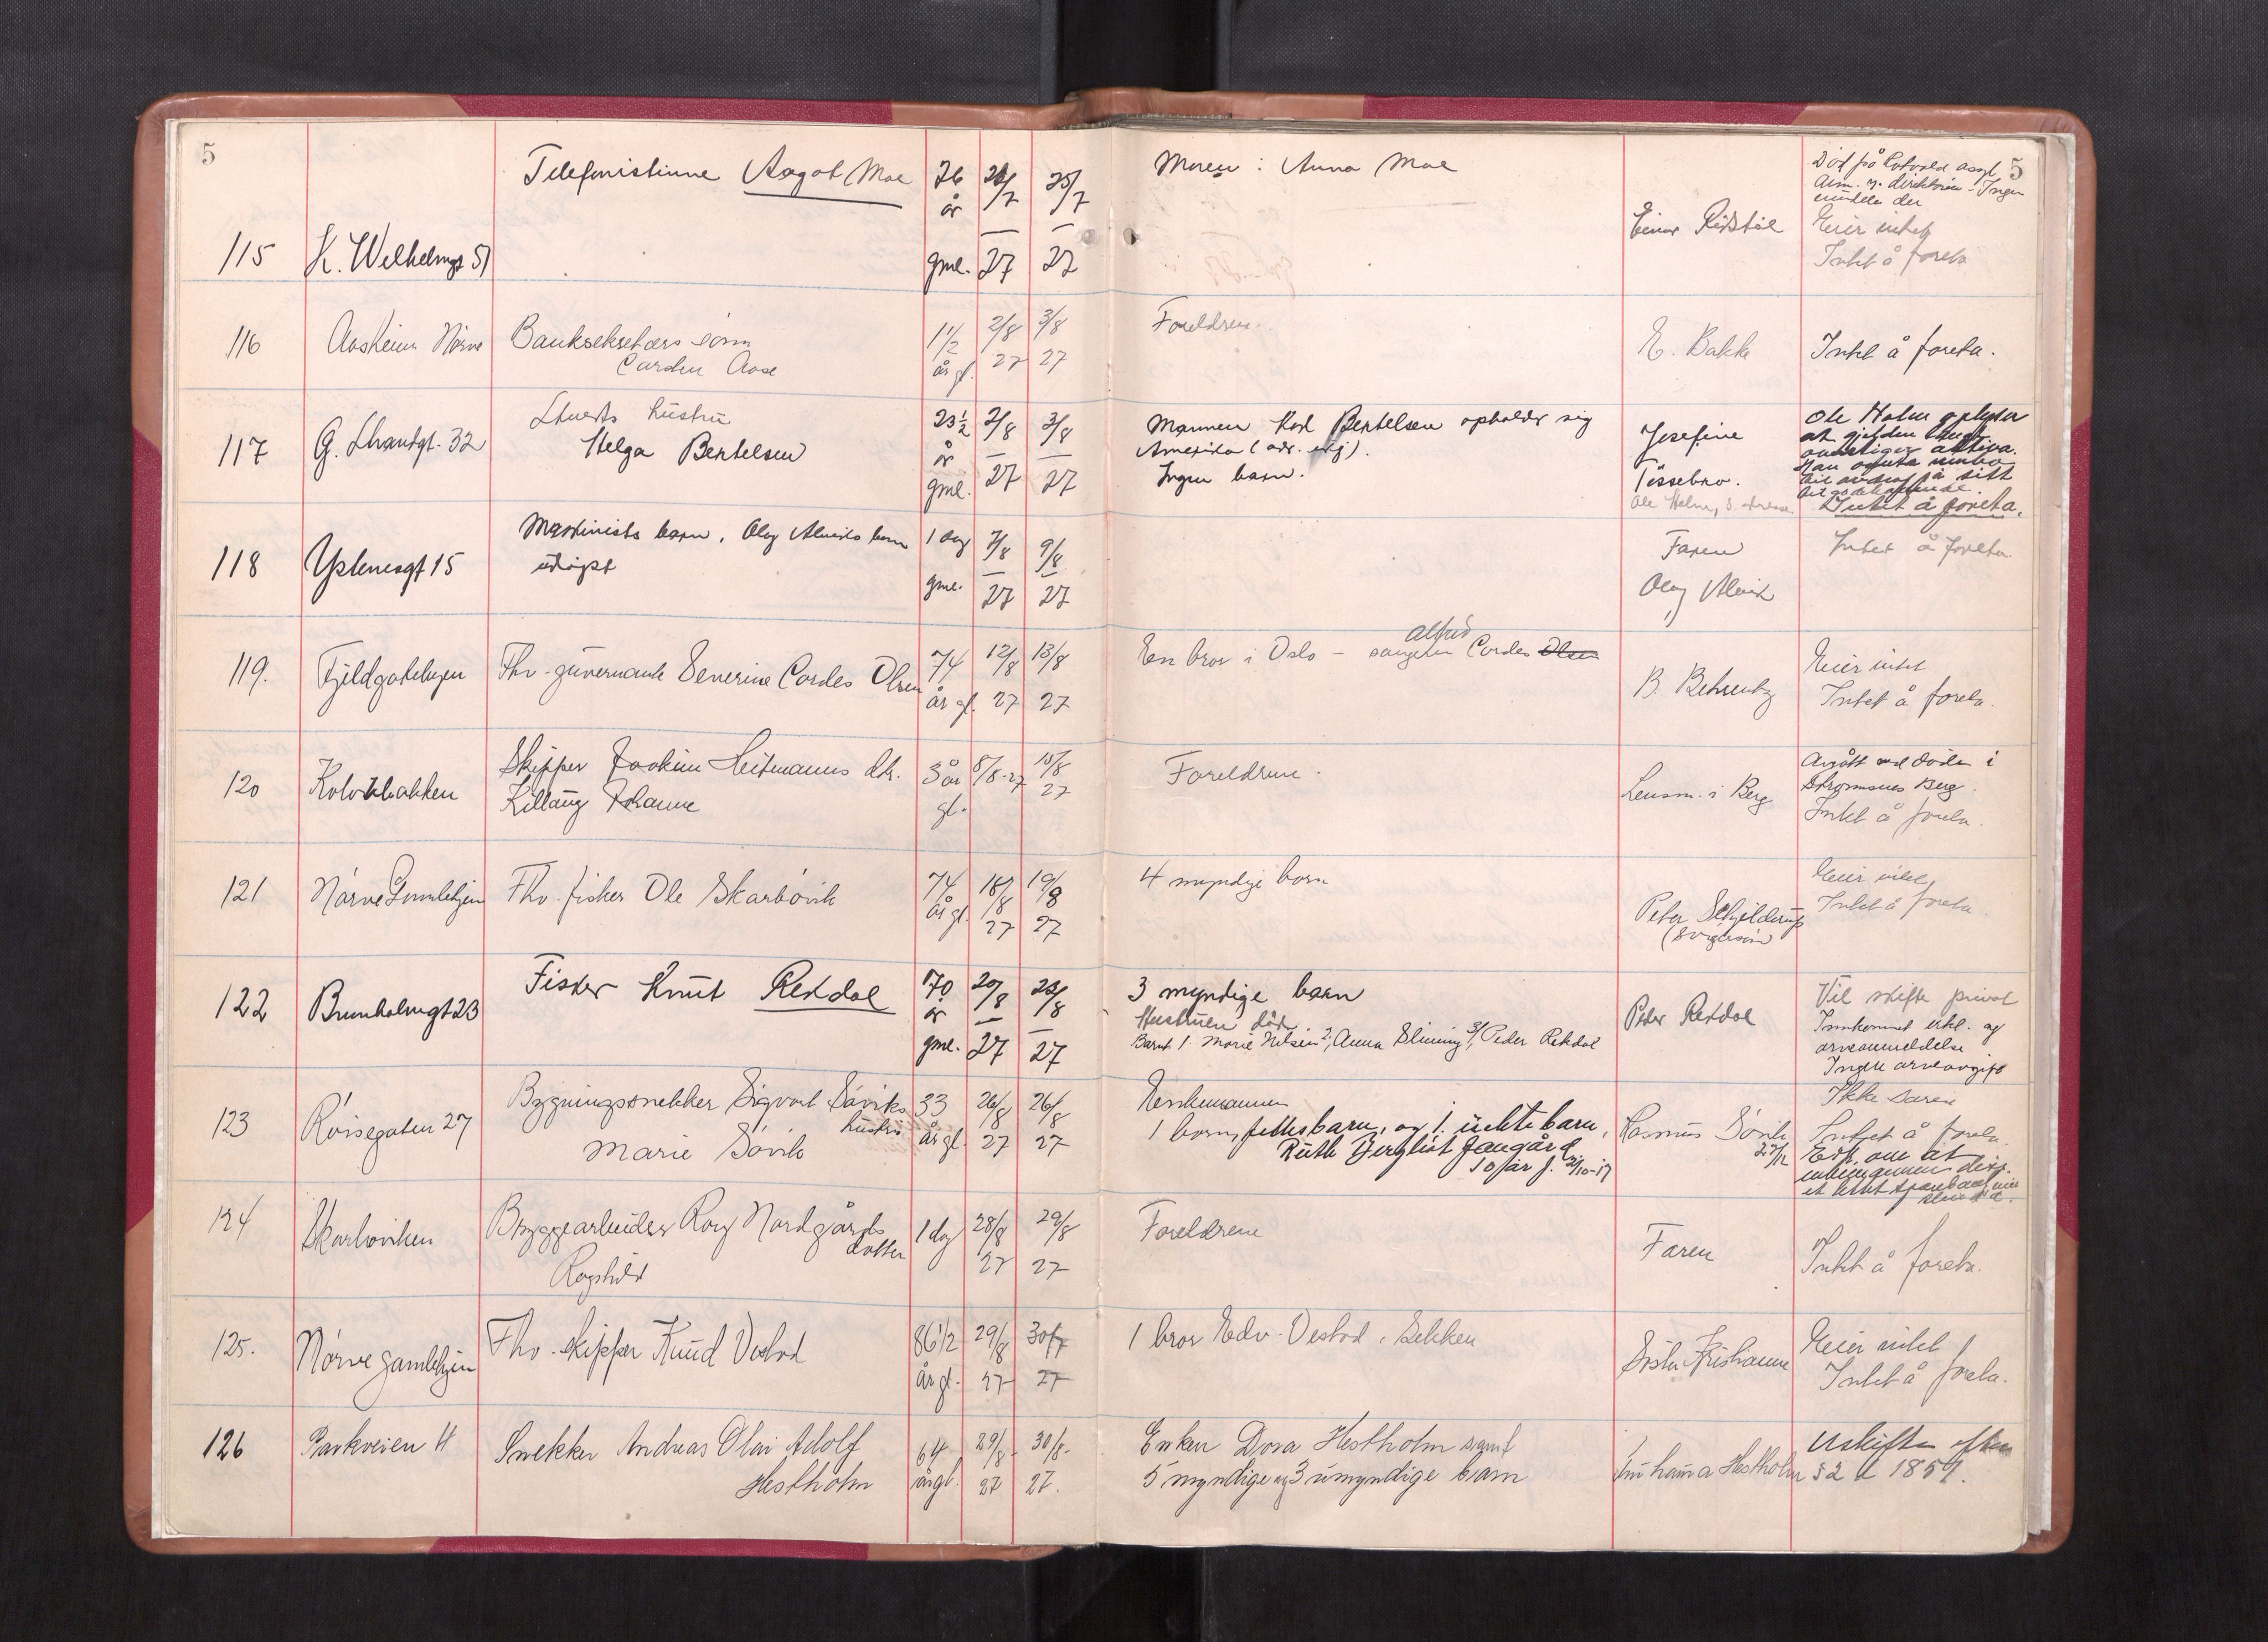 5
5
115 K. Wilhelmsgt 51
Telefonistinne Aagot Moe
26 år gml. 7 27 25/7 27
Moren : Anna Moe
Einar
Død på asyl
Eier intet
Intet å foreta
116 Aasheim Nørve
Banksekretærs sønn
Carsten Aase
1 1/2 år gl. 2/8 27 3/8 27
Foreldrene.
E. Bakke
Intet å foreta.
117 G. Strandgt. 32
Stuerts hustru
Helga Bertelsen
23 1/2 år gml. 2/8 27 3/8 27
Mannen Karl Bertelsen opholder sig
Amerika (adr. ukj).
Ingen barn.
Josefine
Tøssebro.
Ole Holm, s. adresse
Ole Holm oplyser
at gjelden langt
overstiger aktiva.
Intet å foreta.
118 Ystenesgt 15
Maskinists barn, Olag Alviks barn
udøpt
1 dag gml. 7/8 27 9/8 27
Faren
Olag Alvik
Intet å foreta
119. Fjeldgatehagen
Fhv. guvernante Severine Cordes Olsen
74 år gl. 12/8 27 13/8 27
Alfred
En bror i Oslo - sangeren Cordes Olsen
B. Behrentz
Eier intet
Intet å foreta.
120 Kolvikbakken
Skipper Joakim Heitmanns dtr.
Killaug Johanne
3 år gl. 8/8-27 10/8 27
Foreldrene.
Lensm. i Berg
Avgått ved døden i
Strømsnes Berg.
Intet å foreta.
121 Nørve Gamlehjem
Fhv. fisker Ole Skarbøvik
74 år gl. 18/8 27 19/8 27
4 myndige barn
Peter Schjelderup
(svigersønn)
Eier intet
Intet å foreta
122 Brunholmgt 23
Fisker Knut Rekdal
70 år gml. 20/8 27 23/8 27
3 myndige barn
Hustruen død
Barn: 1. Marie Nilsen 2, Anna Slinning 3/, Peder Rekdal
Peder Rekdal
Vil skifte privat
Innkommet erkl. og
arveanmeldelse
Ingen arveavgift
123 Røisegaten 27
Bygningssnekker Sigvart Søviks
hustru
Marie Søvik
33 år gl. 26/8 27 26/8 27
Enkemannen
1 barn, fellesbarn, og 1. uekte barn,
Ruth Bergliot
10 år f. 21/10-17
Rasmus Søvik
Ikke særeie
Intet å foreta.
Erk. om at
enkemannen disp.
124 Skarbøviken
Bryggearbeider Rory Nordgårds
datter
Ragnhild
1 dag 28/8 27 29/8 27
Foreldrene
Faren
Intet å foreta.
125. Nørve gamlehjem
Fhv. skipper Knud Vestad
86 1/2 år gl. 29/8 27 30/7 27
1 bror Edv. Vestad, Sekken
Søster Kristianne
Eier intet
Intet å foreta.
126 Parkveien 4
Snekker Andreas Olai Adolf
Hestholm
64 årgl. 29/8. 27 30/8. 27.
Enken Dora Hestholm samt
5 myndige og 3 umyndige barn
Hestholm
Uskiftes efter
§ 2 L 1851.